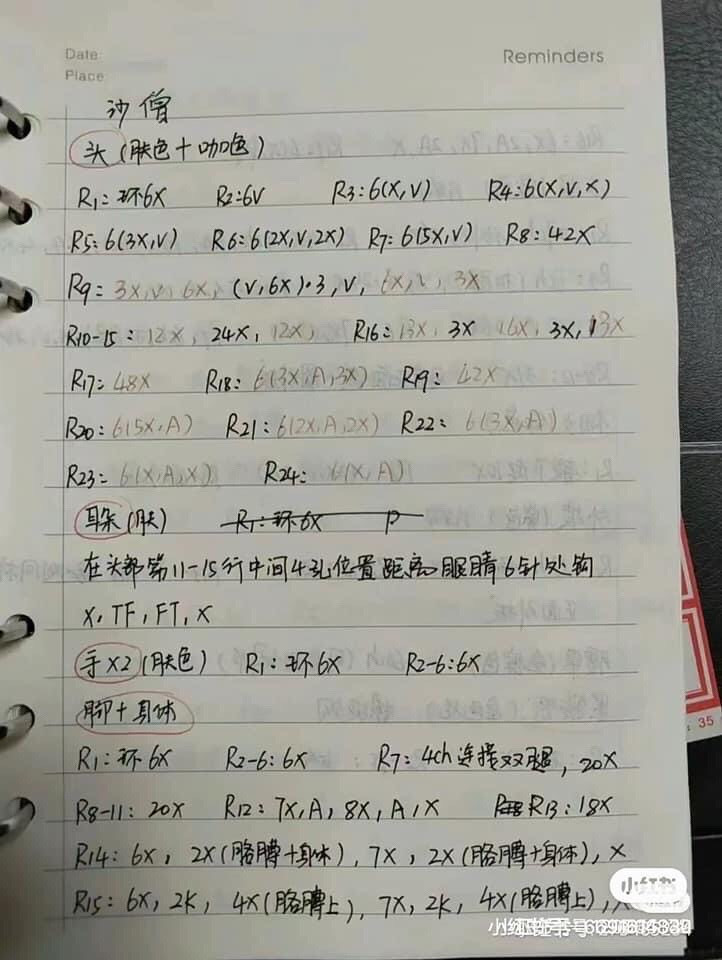 Date:
Reminders
Place
沙僧
头(肤色+咖色)
R1:环6X R2:6V R3:6(X,V) R4:6(X,V,X)
R5:6(3X,V) R6:6(2X,V,2X) R7:6(5X,V) R8:42X
R9:3X,V,6X,(V,6X)·3,V,6X,V,3X
R10-15:12X,24X,12X, R16:13X,3X,16X,3X,13X
R17:48X R18:6(3X,A,3X) R19:42X
R20:6(5X,A) R21:6(2X,A,2X) R22:6(3X,A)
R23:6(X,A,X) R24:6(X,A)
耳朵(肤) R1:环6X
在头部第11-15行中间4孔位置距离眼睛6针处钩
X,TF,FT,X
手X2(肤色) R1:环6X R2-6:6X
脚+身体
R1:环6X R2-6:6X R7:4ch连接双腿,20X
R8-11:20X R12:7X,A,8X,A,X R13:18X
R14:6X,2X(胳膊+身体),7X,2X(胳膊+身体),X
R15:6X,2K,4X(胳膊上),7X,2K,4X(胳膊上),
小红书
35